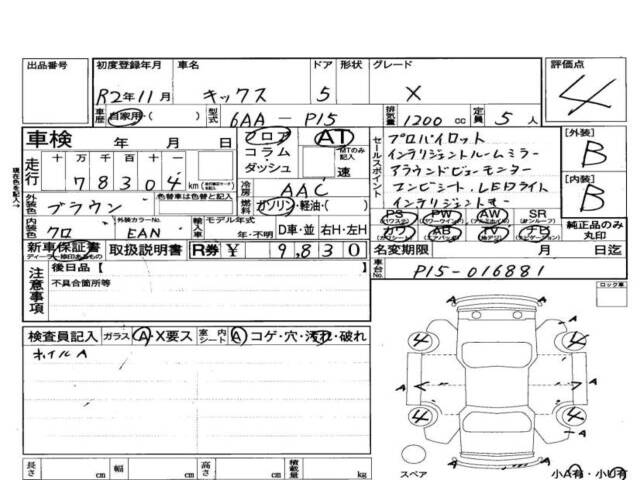 出品番号 初度登録年月 車名 ドア 形状 グレード 評価点
R2年11月 キックス 5 X 4
車歴 自家用・( ) 型式 6AA-P15 排気量 1200cc 定員 5人
車検 年 月 日 フロア・コラム・ダッシュ AT MTのみ記入 速
走行 十 万 千 百 十 一
78304 km
セールスポイント
プロパイロット
インテリジェントルームミラー
アラウンドビューモニター
コンビシート、LEDライト
インテリジェントキー
[外装] B
[内装] B
現在色を記入→
外装色 ブラウン 色替車は色替と記入
冷房 AAC
燃料 ガソリン・軽油・( )
内装色 クロ 外装カラーNo. EAN 輸入車 モデル年式 年・不明 D車・並 右H・左H
PS PW AW SR
カワ AB TV ナビ
純正品のみ丸印
新車保証書 取扱説明書 R券 ¥ 9,830 名変期限 月 日迄
注意事項 後日品[
不具合箇所等
車台No. P15-016881
ロック車
検査員記入 ガラス A・X要ス 室内シート A コゲ・穴・汚れ・破れ
ホイルA
4 4
A A
A
4 4
A
スペア 小A有・小U有
長さ cm 幅 cm 高さ cm 積載量 kg